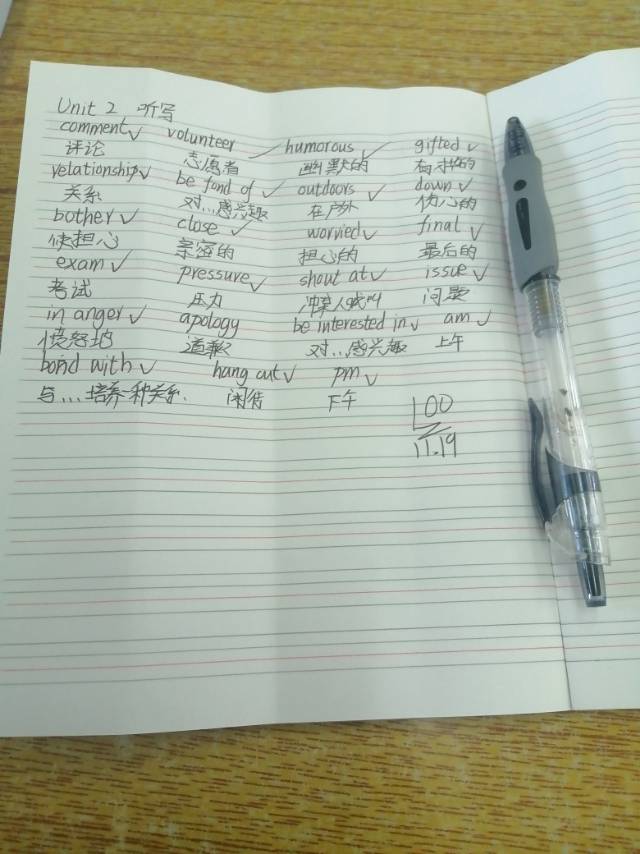 Unit 2 听写
comment✓ volunteer ✓ humorous ✓ gifted ✓
评论 志愿者 幽默的 有才华的
relationship✓ be fond of ✓ outdoors ✓ down ✓
关系 对...感兴趣 在户外 伤心的
bother ✓ close ✓ worried ✓ final ✓
使担心 亲密的 担心的 最后的
exam ✓ pressure ✓ shout at ✓ issue ✓
考试 压力 冲某人喊叫 问题
in anger ✓ apology be interested in ✓ am ✓
愤怒地 道歉 对...感兴趣 上午
bond with ✓ hang out ✓ pm ✓
与...培养一种关系. 闲待 下午
100
11.19